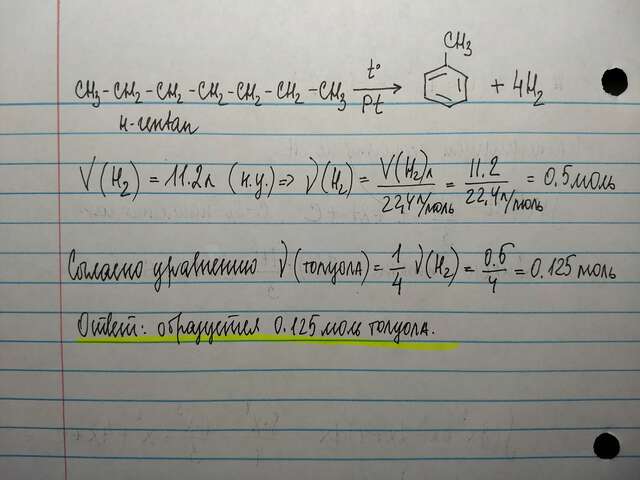 CH₃-CH₂-CH₂-CH₂-CH₂-CH₂-CH₃ t° Pt CH₃ + 4H₂
н-гептан
V(H₂) = 11.2л (н.у.) => ν(H₂) = V(H₂)л / 22,4л/моль = 11.2 / 22,4л/моль = 0.5моль
Согласно уравнению ν(толуола) = 1/4 ν(H₂) = 0.5/4 = 0.125моль
Ответ: образуется 0.125моль толуола.